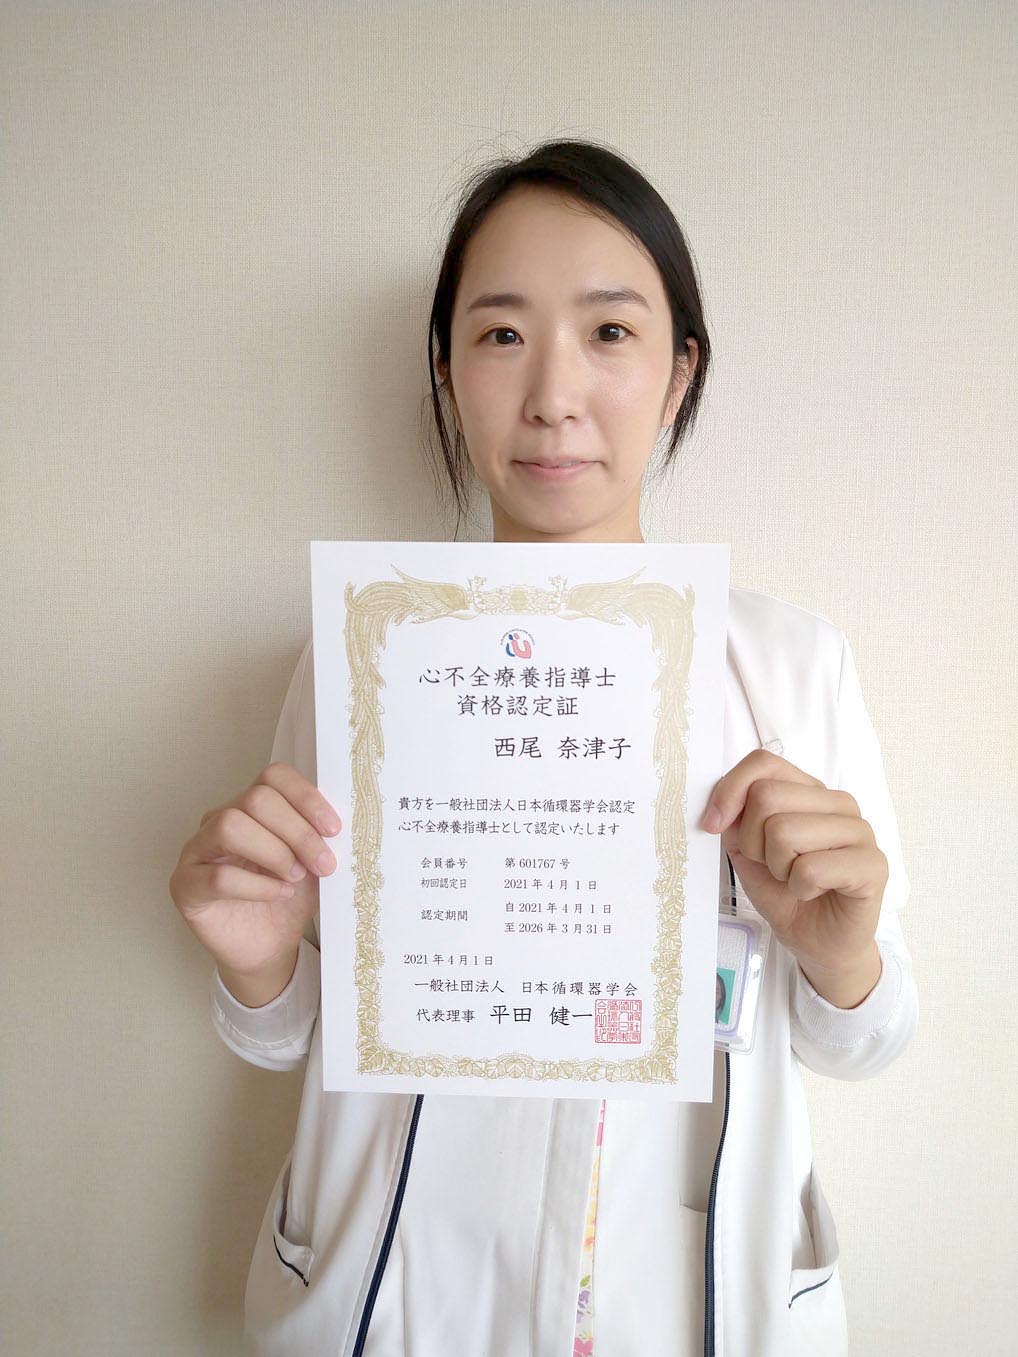 心不全療養指導士
資格認定証
西尾 奈津子
貴方を一般社団法人日本循環器学会認定
心不全療養指導士として認定いたします
会員番号 第 601767 号
初回認定日 2021 年 4 月 1 日
認定期間 自 2021 年 4 月 1 日
至 2026 年 3 月 31 日
2021 年 4 月 1 日
一般社団法人 日本循環器学会
代表理事 平田 健一